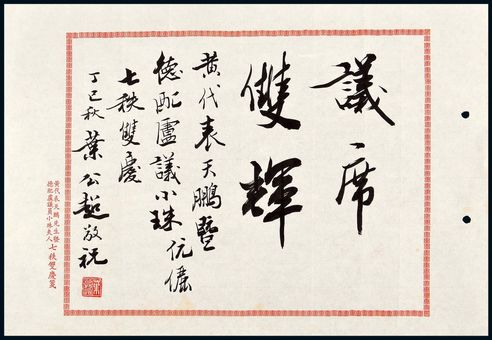 議席
雙輝
黃代表天鵬暨
德配盧議小珠伉儷
七秩雙慶
丁巳秋 葉公超敬祝
黃代表天鵬先生暨
德配盧議員小珠夫人
七秩雙慶箋